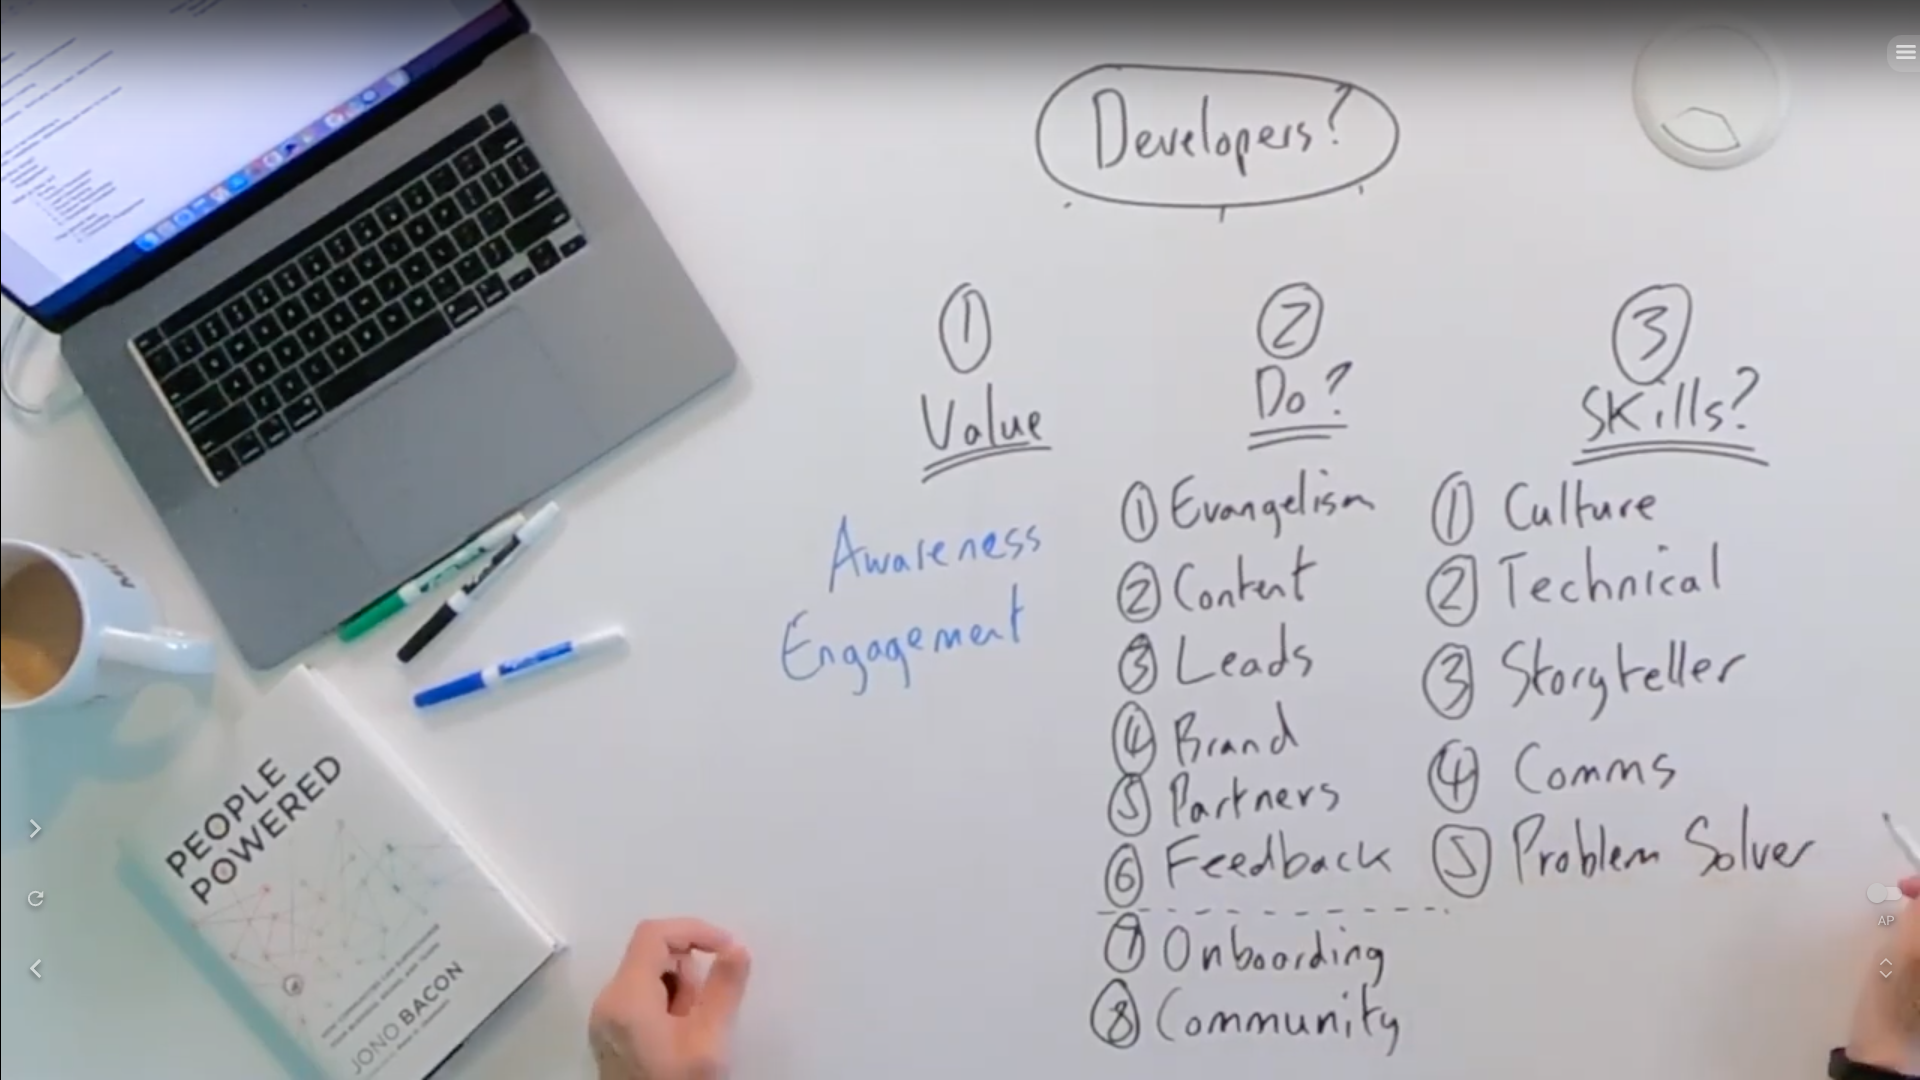 Developers?
1
Value
Awareness
Engagement
2
Do?
1 Evangelism
2 Content
3 Leads
4 Brand
5 Partners
6 Feedback
7 Onboarding
8 Community
3
Skills?
1 Culture
2 Technical
3 Storyteller
4 Comms
5 Problem Solver
PEOPLE
POWERED
JONO BACON
AP